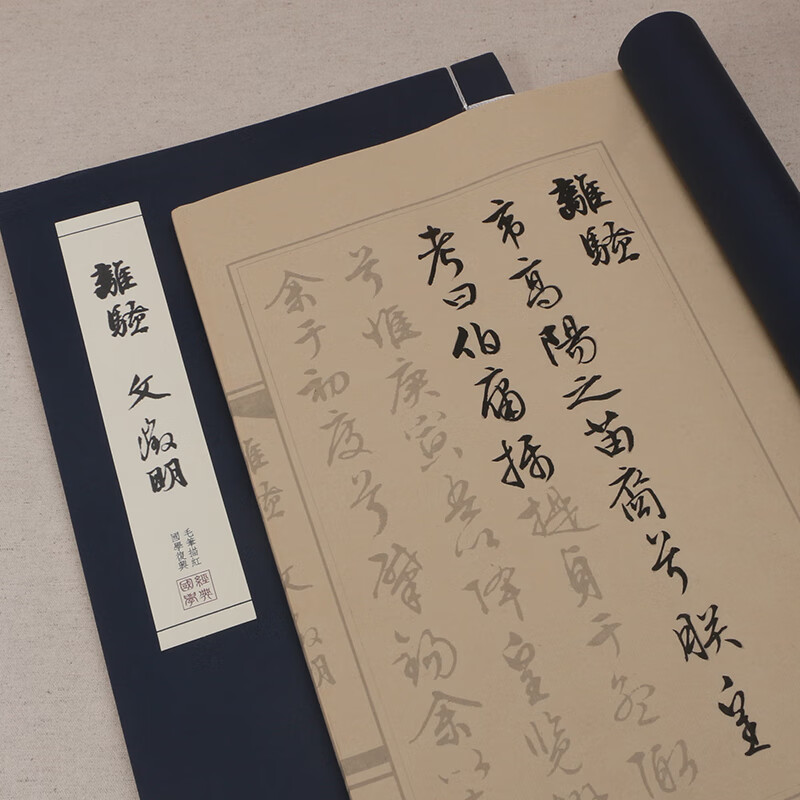 離騷
文徵明
毛筆描紅
國學復興
經典
國學
離騷
帝高陽之苗裔兮朕皇
考曰伯庸攝提貞于孟陬
兮惟庚寅吾以降皇覽揆
余于初度兮肇錫余以
離騷 文徵明